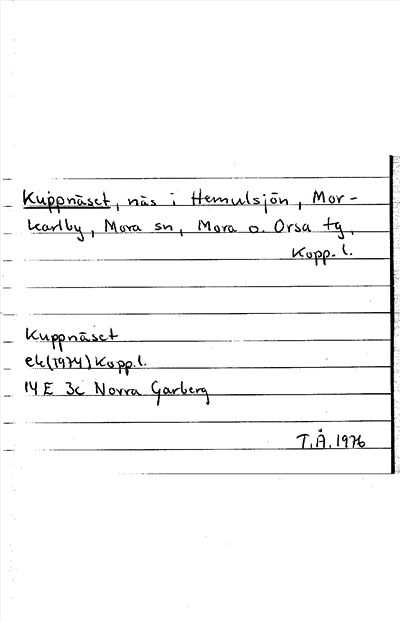 Kuppnäset, näs i Hemulsjön, Mor-
karlby, Mora sn, Mora o. Orsa tg,
Kopp. l.
Kuppnäset
ek (1974) Kopp. l.
14 E 3c Norra Garberg
T.Å. 1976